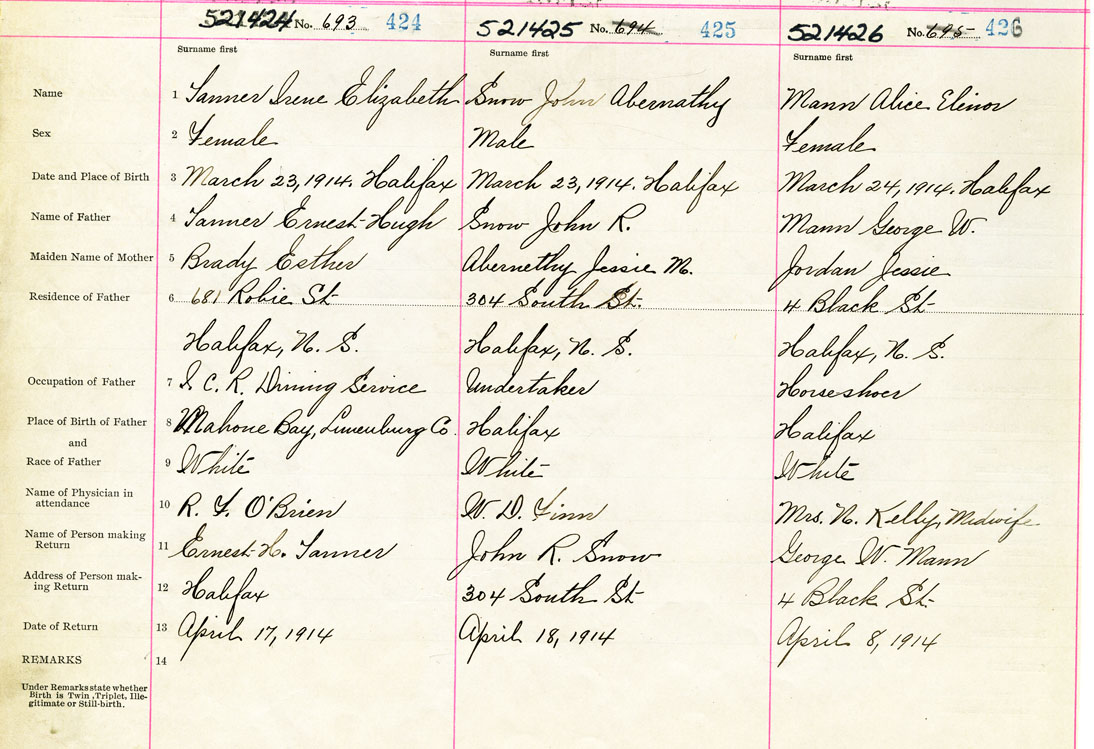 521424 No. 693 424 521425 No. 694 425 521426 No. 695 426
Surname first Surname first Surname first
Name 1 Tanner Irene Elizabeth Snow John Abernathy Mann Alice Elinor
Sex 2 Female Male Female
Date and Place of Birth 3 March 23, 1914. Halifax March 23, 1914. Halifax March 24, 1914. Halifax
Name of Father 4 Tanner Ernest Hugh Snow John R. Mann George W.
Maiden Name of Mother 5 Brady Esther Abernethy Jessie M. Jordan Jessie
Residence of Father 6 681 Robie St. 304 South St. 4 Black St.
Halifax, N. S. Halifax, N. S. Halifax, N. S.
Occupation of Father 7 I. C. R. Dining Service Undertaker Horseshoer
Place of Birth of Father 8 Mahone Bay, Lunenburg Co. Halifax Halifax
and
Race of Father 9 White White White
Name of Physician in
attendance 10 R. F. O'Brien W. D. Finn Mrs. N. Kelly, Midwife
Name of Person making
Return 11 Ernest H. Tanner John R. Snow George W. Mann
Address of Person mak-
ing Return 12 Halifax 304 South St. 4 Black St.
Date of Return 13 April 17, 1914 April 18, 1914 April 8, 1914
REMARKS 14
Under Remarks state whether
Birth is Twin, Triplet, Ille-
gitimate or Still-birth.